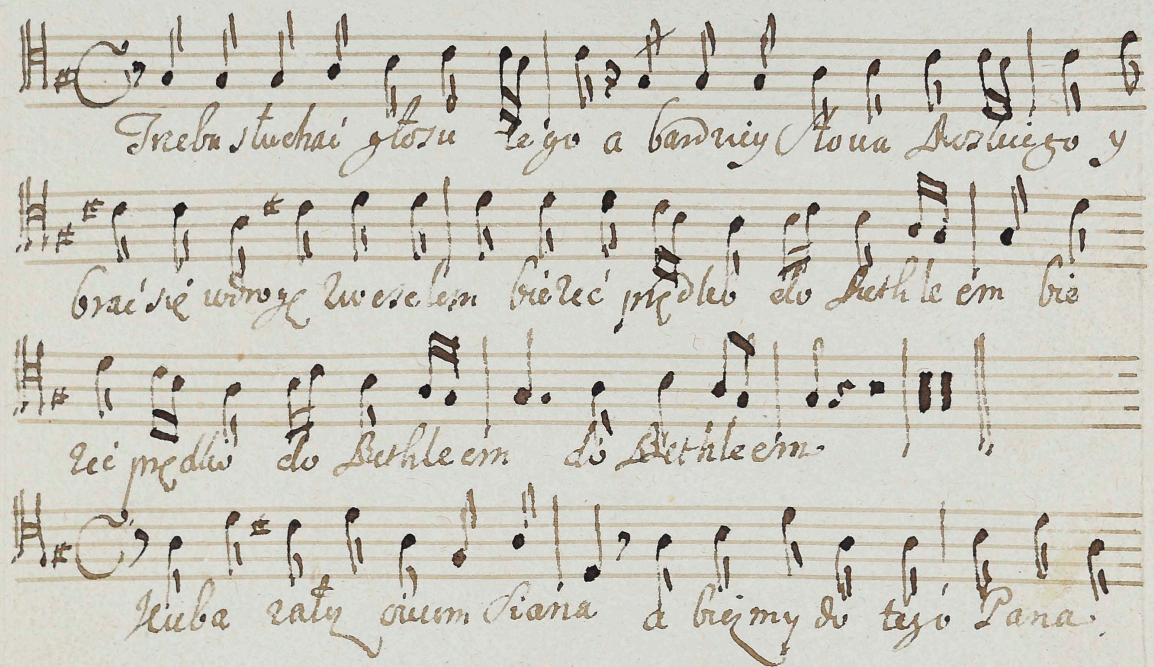 Trzeba słuchać głosu tego a bardziey Słowa Boskiego y
brać się wdrogę zweselem bieżeć prędko do Bethleém bie
żeć prędko do Bethleém do Bethleém
Kuba załoz owcom Siana a bieźmy do tego Pana